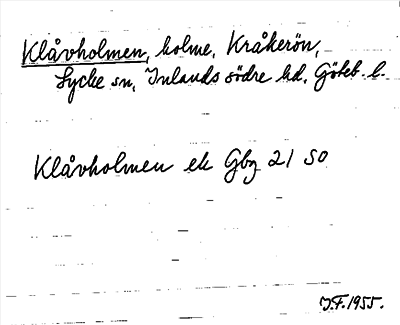 Klåvholmen, holme, Kråkerön,
Lycke sn, Inlands södre hd, Göteb. l.
Klåvholmen ek Gbg 21 SO
J.F. 1955.